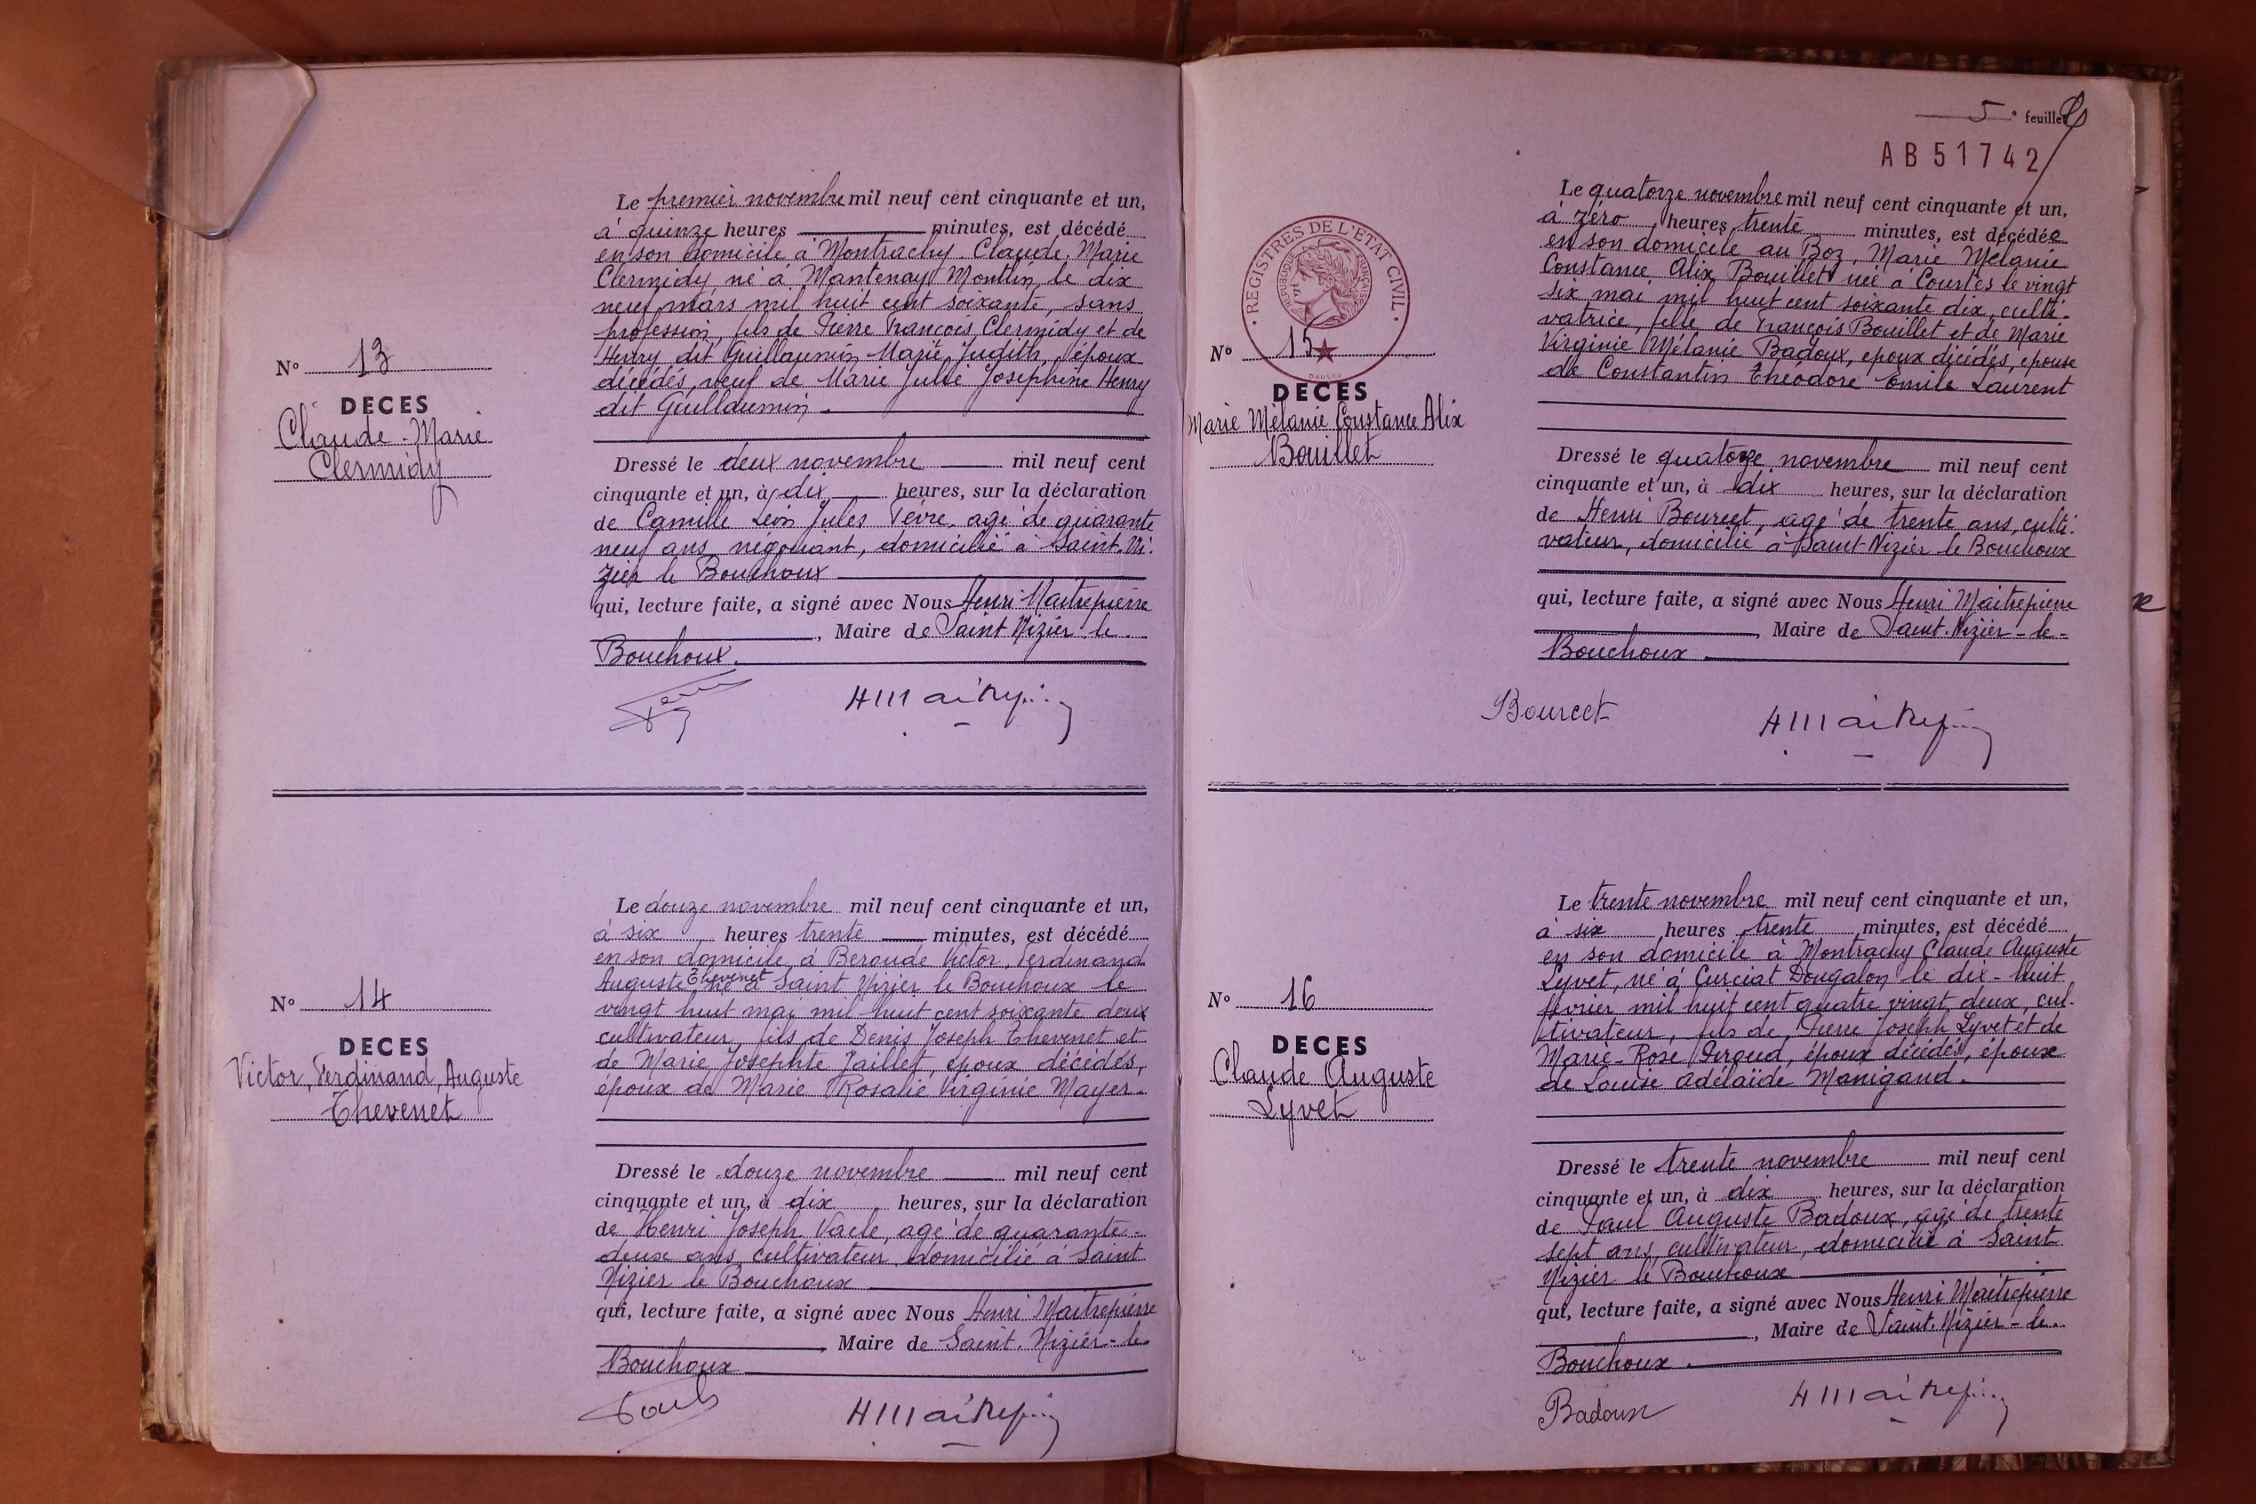 N° 13
DECES
Claude-Marie
Clermidy
Le premier novembre mil neuf cent cinquante et un,
à quinze heures minutes, est décédé
en son domicile à Montrachy. Claude, Marie
Clermidy né à Mantenay Montlin, le dix
neuf mars mil huit cent soixante, sans
profession, fils de Pierre François Clermidy et de
Henry dit Guillaumin Marie Judith, époux
décédés, veuf de Marie Julie Josephine Henry
dit Guillaumin.
Dressé le deux novembre mil neuf cent
cinquante et un, à dix heures, sur la déclaration
de Camille Léon Jules Fèvre, agé de quarante
neuf ans, négociant, domicilié à Saint-Ni-
zier le Bouchoux
qui, lecture faite, a signé avec Nous Henri Maitrepierre
, Maire de Saint Nizier le
Bouchoux.
N° 14
DECES
Victor, Ferdinand, Auguste
Thevenet
Le douze novembre mil neuf cent cinquante et un,
à six heures trente minutes, est décédé
en son domicile à Beroude Victor, Ferdinand
Auguste Thevenet né à Saint Nizier le Bouchoux le
vingt huit mai mil huit cent soixante deux
cultivateur, fils de Denis Joseph Thevenet et
de Marie Josephte Jaillet, époux décédés,
époux de Marie Rosalie Virginie Mayer.
Dressé le douze novembre mil neuf cent
cinquante et un, à dix heures, sur la déclaration
de Henri Joseph Vacle, agé de quarante-
deux ans, cultivateur domicilié à Saint
Nizier le Bouchoux
qui, lecture faite, a signé avec Nous Henri Maitrepierre
, Maire de Saint-Nizier-le
Bouchoux
5e feuillet
AB51742
REGISTRES DE L'ETAT CIVIL
N° 15
DECES
Marie Mélanie Constance Alix
Bouillet
Le quatorze novembre mil neuf cent cinquante et un,
à zéro heures, trente minutes, est décédée
en son domicile au Boz, Marie Mélanie
Constance Alix Bouillet née à Courtes le vingt
six mai mil huit cent soixante dix, culti-
vatrice, fille de François Bouillet et de Marie
Virginie Mélanie Badoux, époux décédés, épouse
de Constantin Théodore Emile Laurent
Dressé le quatorze novembre mil neuf cent
cinquante et un, à dix heures, sur la déclaration
de Henri Bourcet, agé de trente ans, culti-
vateur, domicilié à Saint-Nizier le Bouchoux
qui, lecture faite, a signé avec Nous Henri Maitrepierre
, Maire de Saint-Nizier-le-
Bouchoux
Bourcet
N° 16
DECES
Claude Auguste
Lyvet
Le trente novembre mil neuf cent cinquante et un,
à six heures trente minutes, est décédé
en son domicile à Montrachy Claude Auguste
Lyvet, né à Curciat Dongalon le dix-huit
février mil huit cent quatre vingt deux, cul-
tivateur, fils de Pierre Joseph Lyvet et de
Marie-Rose Peroud, époux décédés, époux
de Louise Adélaïde Manigand.
Dressé le trente novembre mil neuf cent
cinquante et un, à dix heures, sur la déclaration
de Paul Auguste Badoux, agé de trente
sept ans, cultivateur, domicilié à Saint
Nizier le Bouchoux
qui, lecture faite, a signé avec Nous Henri Maitrepierre
, Maire de Saint-Nizier-le
Bouchoux.
Badoux